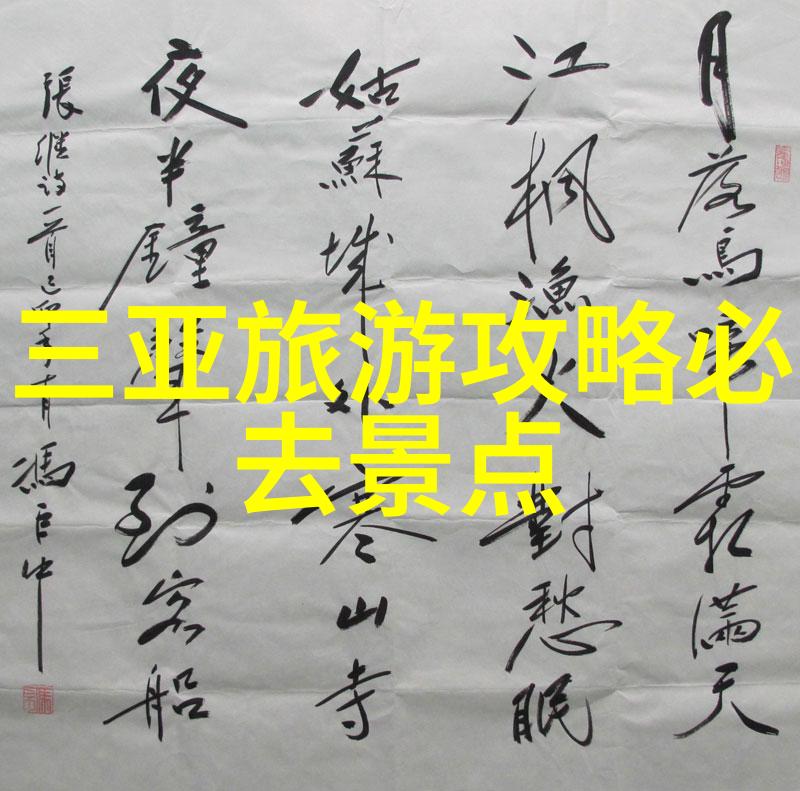 三亚旅游攻略必
去景点
月落烏啼霜滿天
江楓漁火對愁眠
姑蘇城外寒山寺
夜半鐘聲到客船
張继诗一首 年十月 馮 中